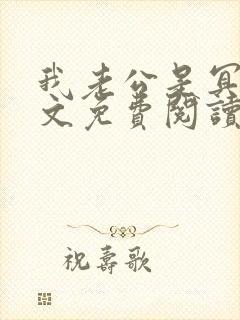 我老公是冥
文免費閱讀
祝壽歌